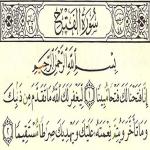 سُورَةُ الفَتْحِ
بِسْمِ اللَّهِ الرَّحْمَٰنِ الرَّحِيمِ
إِنَّا فَتَحْنَا لَكَ فَتْحًا مُّبِينًا ۝ لِّيَغْفِرَ لَكَ اللَّهُ مَا تَقَدَّمَ مِن ذَنبِكَ
وَمَا تَأَخَّرَ وَيُتِمَّ نِعْمَتَهُ عَلَيْكَ وَيَهْدِيَكَ صِرَاطًا مُّسْتَقِيمًا ۝